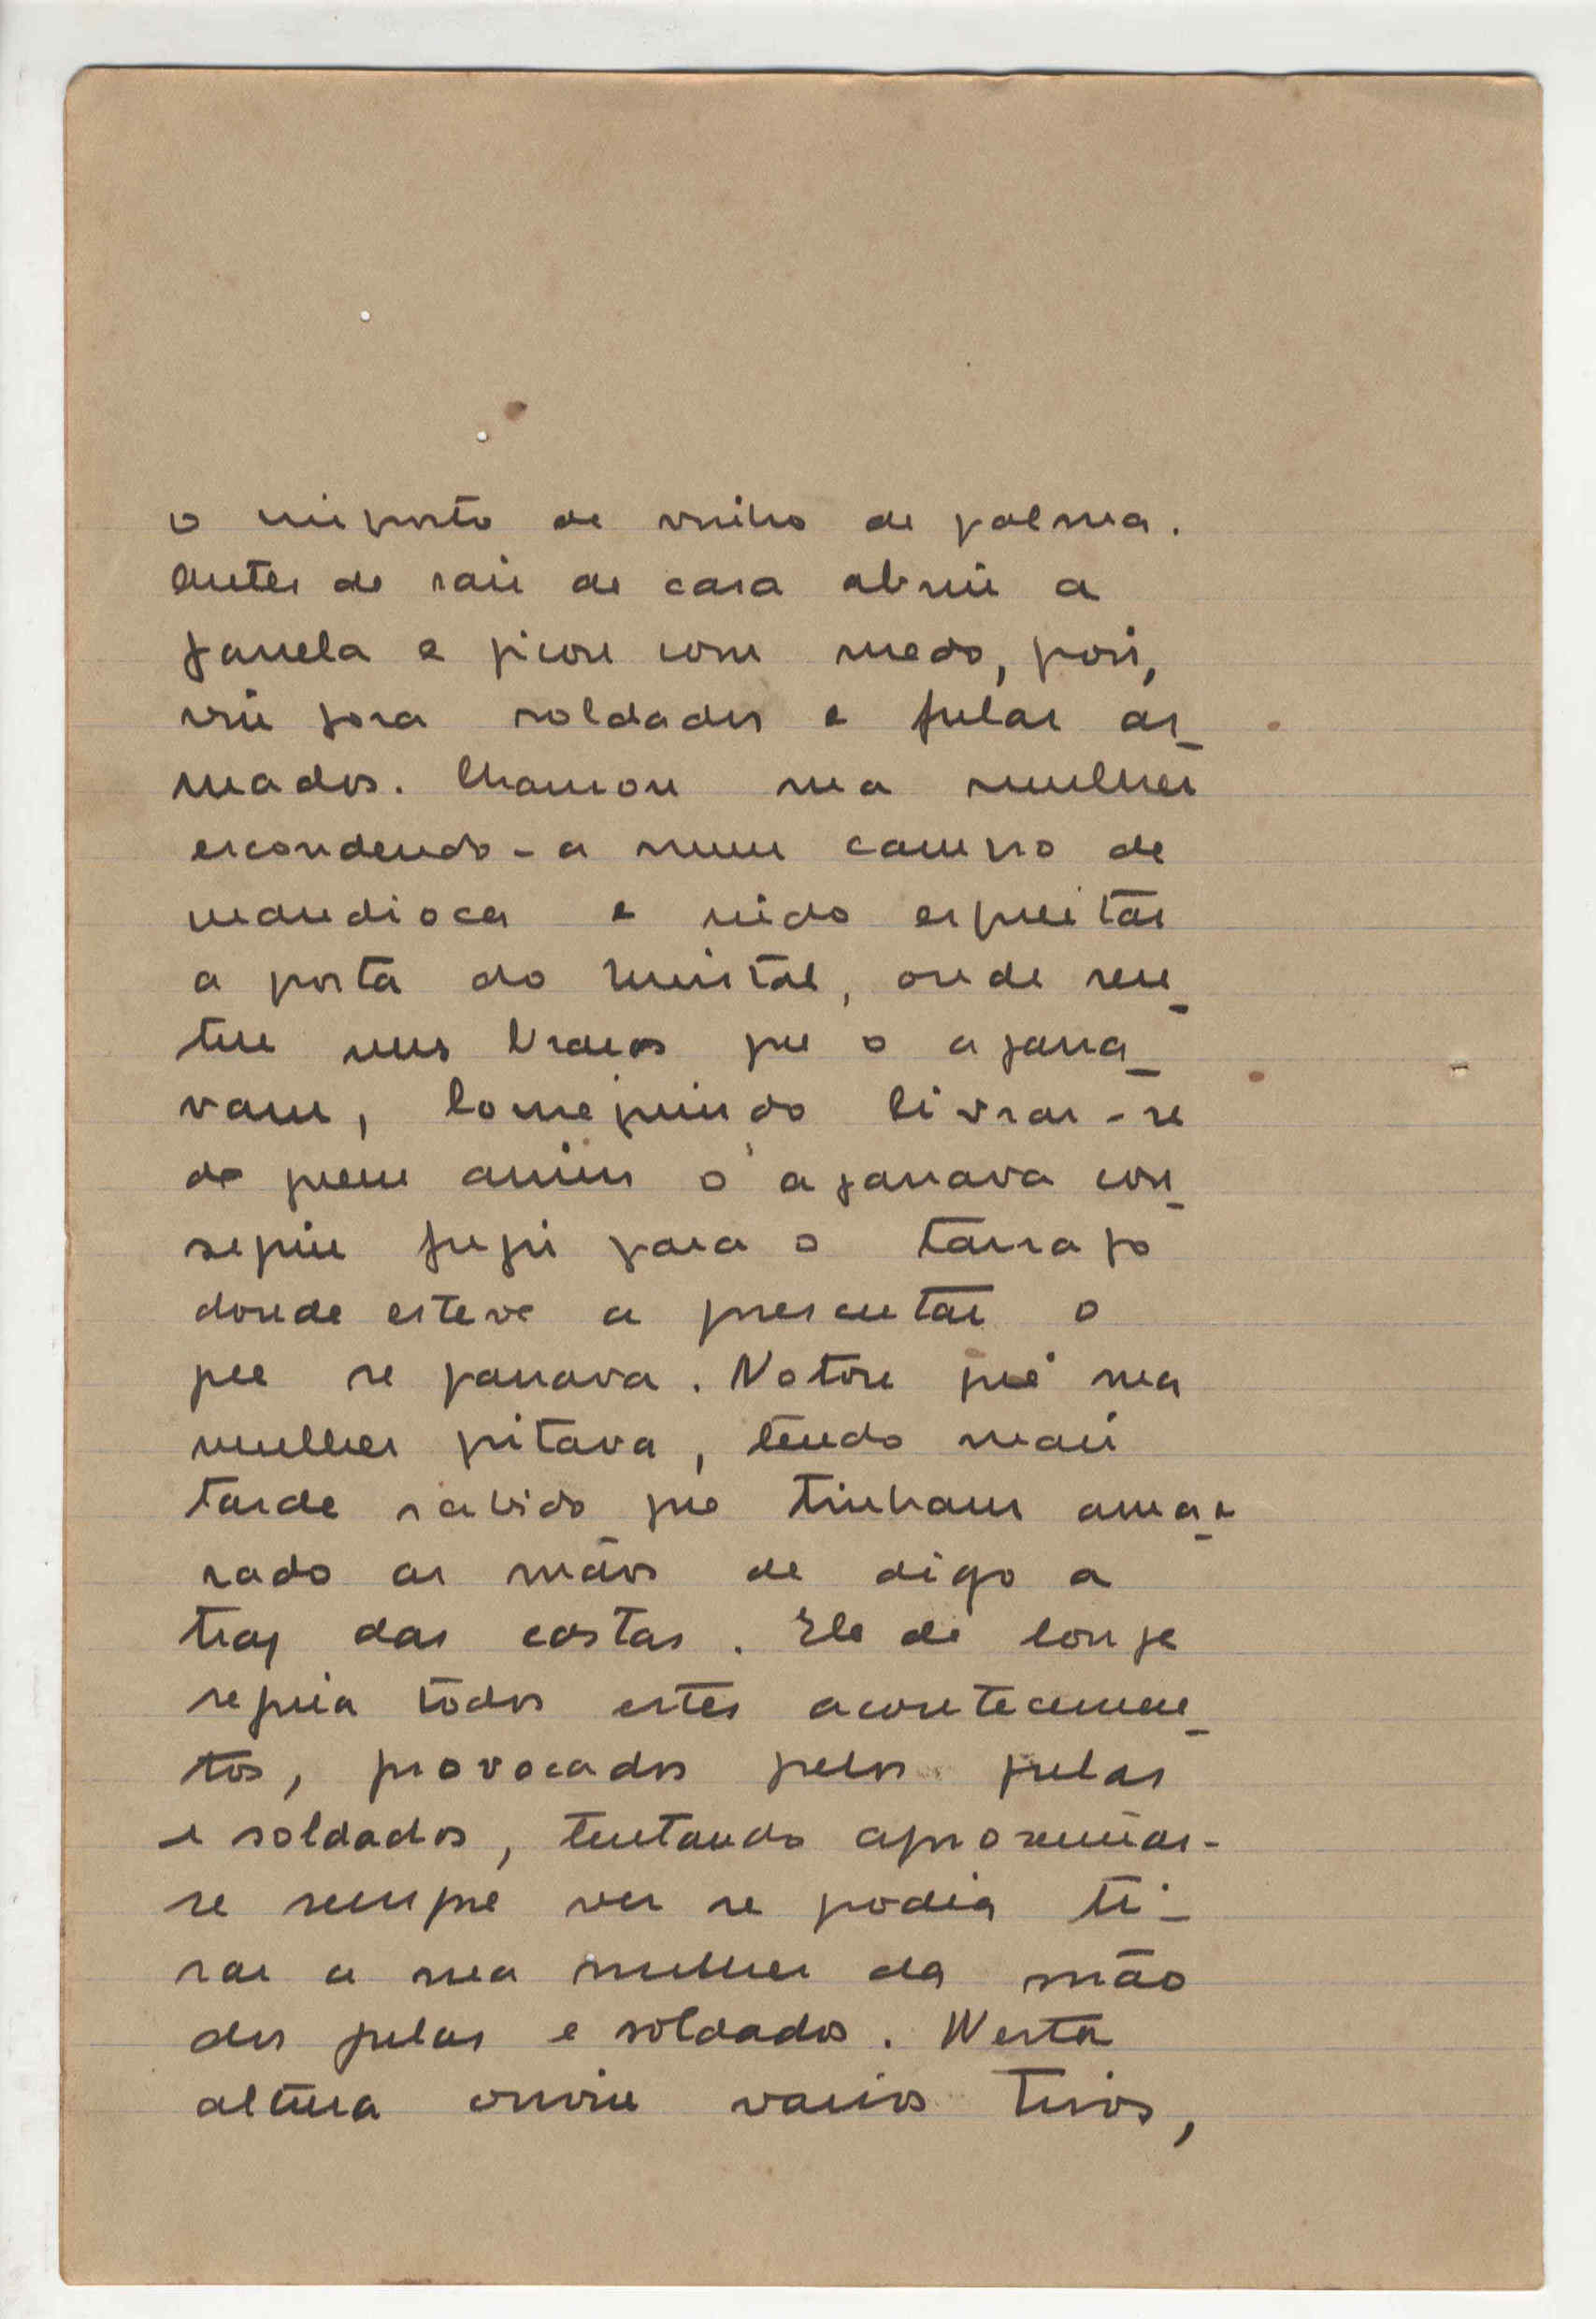 o imposto de vinho de palma.
Antes de sair de casa abriu a
janela e ficou com medo, pois,
viu fora soldados e fulas ar_
mados. Chamou sua mulher
escondendo-a num campo de
mandioca e indo espreitar
a porta do quintal, onde sen_
tiu uns braços que o agarra_
vam, Conseguindo livrar-se
de quem assim o agarrava con_
seguiu fugir para o tarrafo
donde esteve a prescutar o
que se passava. Notou que sua
mulher gritava, tendo mais
tarde sabido que tinham amar_
rado as mãos de digo a
traz das costas. Ele de longe
seguia todos estes acontecimen_
tos, provocados pelos fulas
e soldados, tentando aproximar-
se sempre ver se podia ti_
rar a sua mulher da mão
dos fulas e soldados. Nesta
altura ouviu varios tiros,